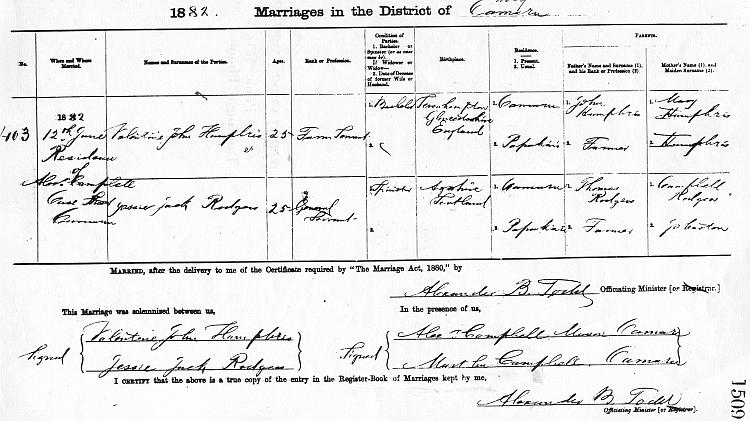 1882. Marriages in the District of Oamaru
PARENTS.
No.
When and Where Married.
Names and Surnames of the Parties.
Ages.
Rank or Profession.
Condition of Parties. 1. Bachelor or Spinster (or as case may be). If Widower or Widow— 2. Date of Decease of former Wife or Husband.
Birthplace.
Residence. 1. Present. 2. Usual.
Father's Name and Surname (1), and his Rank or Profession (2).
Mother's Name (1), and Maiden Surname (2).
403
1882
12th June
Residence
of
Alexr Campbell
Oamaru
Valentine John Humphris
25
Farm Servant
Bachelor
2
Gloucestershire
England
Oamaru
2 Papakaio
John Humphris
2 Farmer
2 May Humphris
2 Humphris
Jessie Jack Rodgers
25
General Servant
Spinster
2
Ayrshire
Scotland
Oamaru
Papakaio
2 Thomas Rodgers
2 Farmer
2 Campbell Rodgers
2 Johnston
MARRIED, after the delivery to me of the Certificate required by "The Marriage Act, 1880," by
Alexander B. Todd Officiating Minister [or Registrar.]
This Marriage was solemnised between us,
In the presence of us,
Signed
Valentine John Humphris
Jessie Jack Rodgers
Signed
Alexr Campbell Oamaru
Campbell Oamaru
I CERTIFY that the above is a true copy of the entry in the Register-Book of Marriages kept by me,
Alexander B Todd
Officiating Minister [or Registrar.]
1509